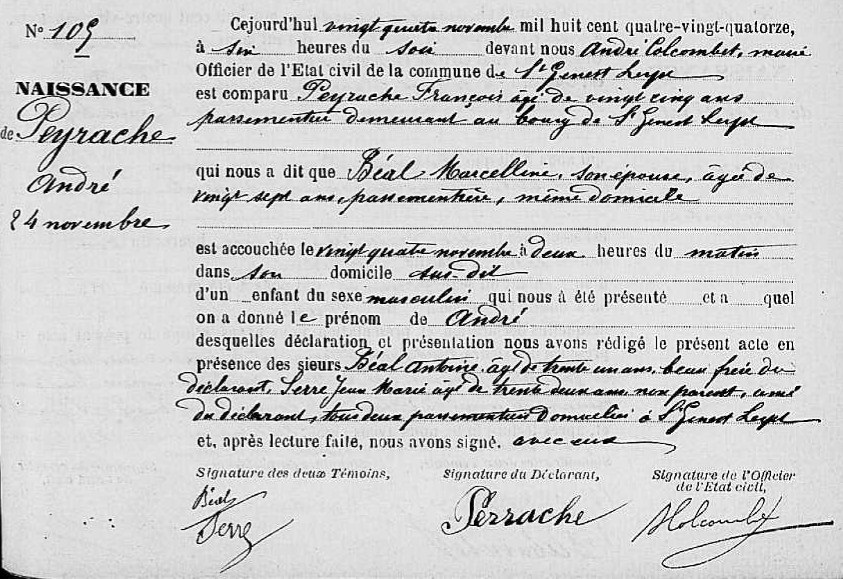 N° 105
NAISSANCE
de Peyrache
André
24 novembre
Cejourd'hui vingt quatre novembre mil huit cent quatre-vingt-quatorze,
à six heures du soir devant nous André Colcombet, maire
Officier de l'Etat civil de la commune de St Genest Lerpt
est comparu Peyrache François âgé de vingt cinq ans
passementier demeurant au bourg de St Genest Lerpt
qui nous a dit que Béal Marcelline, son épouse, âgée de
vingt sept ans, passementière, même domicile
est accouchée le vingt quatre novembre à deux heures du matin
dans son domicile sus-dit
d'un enfant du sexe masculin qui nous a été présenté et a quel
on a donné le prénom de André
desquelles déclaration et présentation nous avons rédigé le présent acte en
présence des sieurs Béal Antoine âgé de trente un ans, beau frère du
déclarant, Serre Jean Marie âgé de trente deux ans, non parent, ami
du déclarant, tous deux passementiers domiciliés à St Genest Lerpt
et, après lecture faite, nous avons signé. avec eux
Signature des deux Témoins,
Béal
Serre
Signature du Déclarant,
Perrache
Signature de l'Officier
de l'Etat civil,
A Colcombet